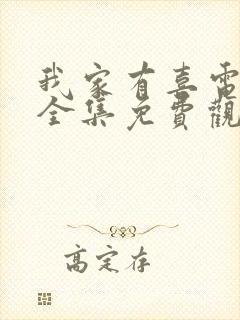 我家有喜電
全集免費觀
高定存